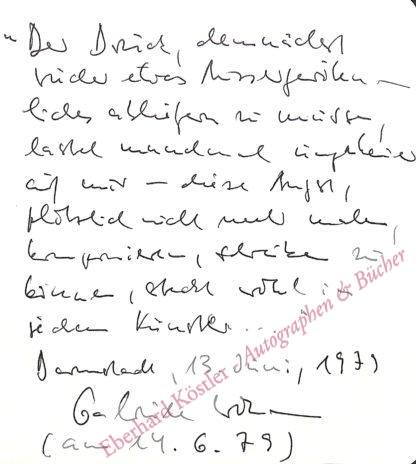 "Der Druck, demnächst
wieder etwas Aussergewöhn-
liches abliefern zu müssen,
lastet manchmal ungeheuer
auf mir — diese Angst,
plötzlich nicht mehr malen,
komponieren, schreiben zu
können, steckt wohl in
jedem Künstler...
Darmstadt, 13. Juni, 1979
Gabriele Wohmann
(am 14. 6. 79)
Eberhard Köstler - Autographen & Bücher